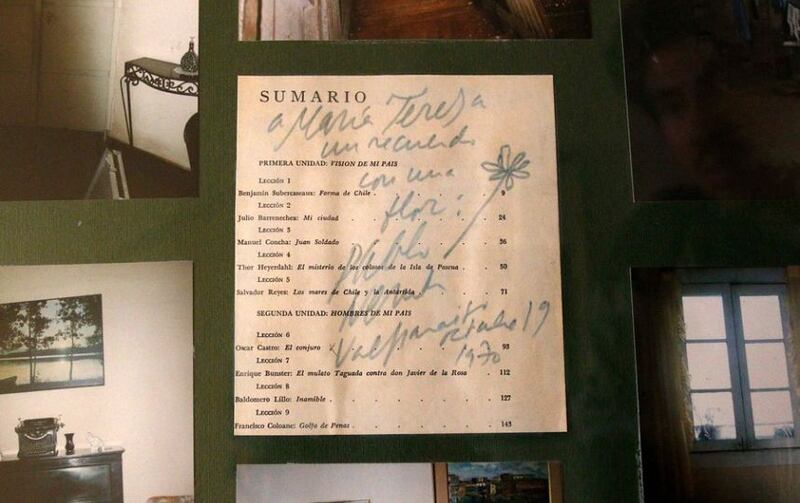 SUMARIO
a María Teresa
un recuerdo
PRIMERA UNIDAD: VISION DE MI PAIS
con una
LECCIÓN 1
Benjamín Subercaseaux: Forma de Chile . . . . 9
LECCIÓN 2
flor:
Julio Barrenechea: Mi ciudad . . . . 24
LECCIÓN 3
Manuel Concha: Juan Soldado . . . . 36
Pablo
LECCIÓN 4
Thor Heyerdahl: El misterio de los colosos de la Isla de Pascua . . 50
LECCIÓN 5
Neruda
Salvador Reyes: Los mares de Chile y la Antártida . . . 71
SEGUNDA UNIDAD: HOMBRES DE MI PAIS
Valparaíso octubre 19
1970
LECCIÓN 6
Oscar Castro: El conjuro . . . . 93
LECCIÓN 7
Enrique Bunster: El mulato Taguada contra don Javier de la Rosa . 112
LECCIÓN 8
Baldomero Lillo: Inamible . . . . 127
LECCIÓN 9
Francisco Coloane: Golfo de Penas . . . . 143